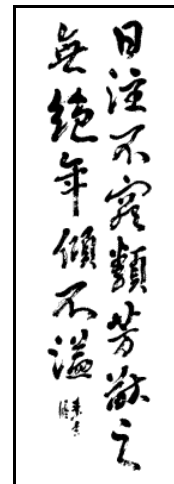 日注不窮類芳猷之
無絶年傾不溢